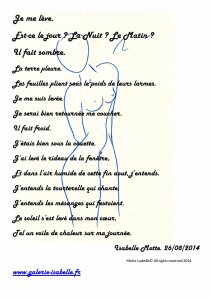 Je me lève.
Est-ce le jour ? La Nuit ? Le Matin ?
Il fait sombre.
La terre pleure.
Les feuilles plient sous le poids de leurs larmes.
Je me suis levée.
Je serai bien retournée me coucher.
Il fait froid.
J'étais bien sous la couette.
J'ai levé le rideau de la fenêtre,
Et dans l'air humide de cette fin aout, j'entends.
J'entends la tourterelle qui chante.
J'entends les mésanges qui festoient.
Le soleil s'est levé dans mon cœur,
Tel un voile de chaleur sur ma journée.
Isabelle Motte. 26/08/2014
Motte Isabelle© All rights reserved 2014
www.galerie-isabelle.fr